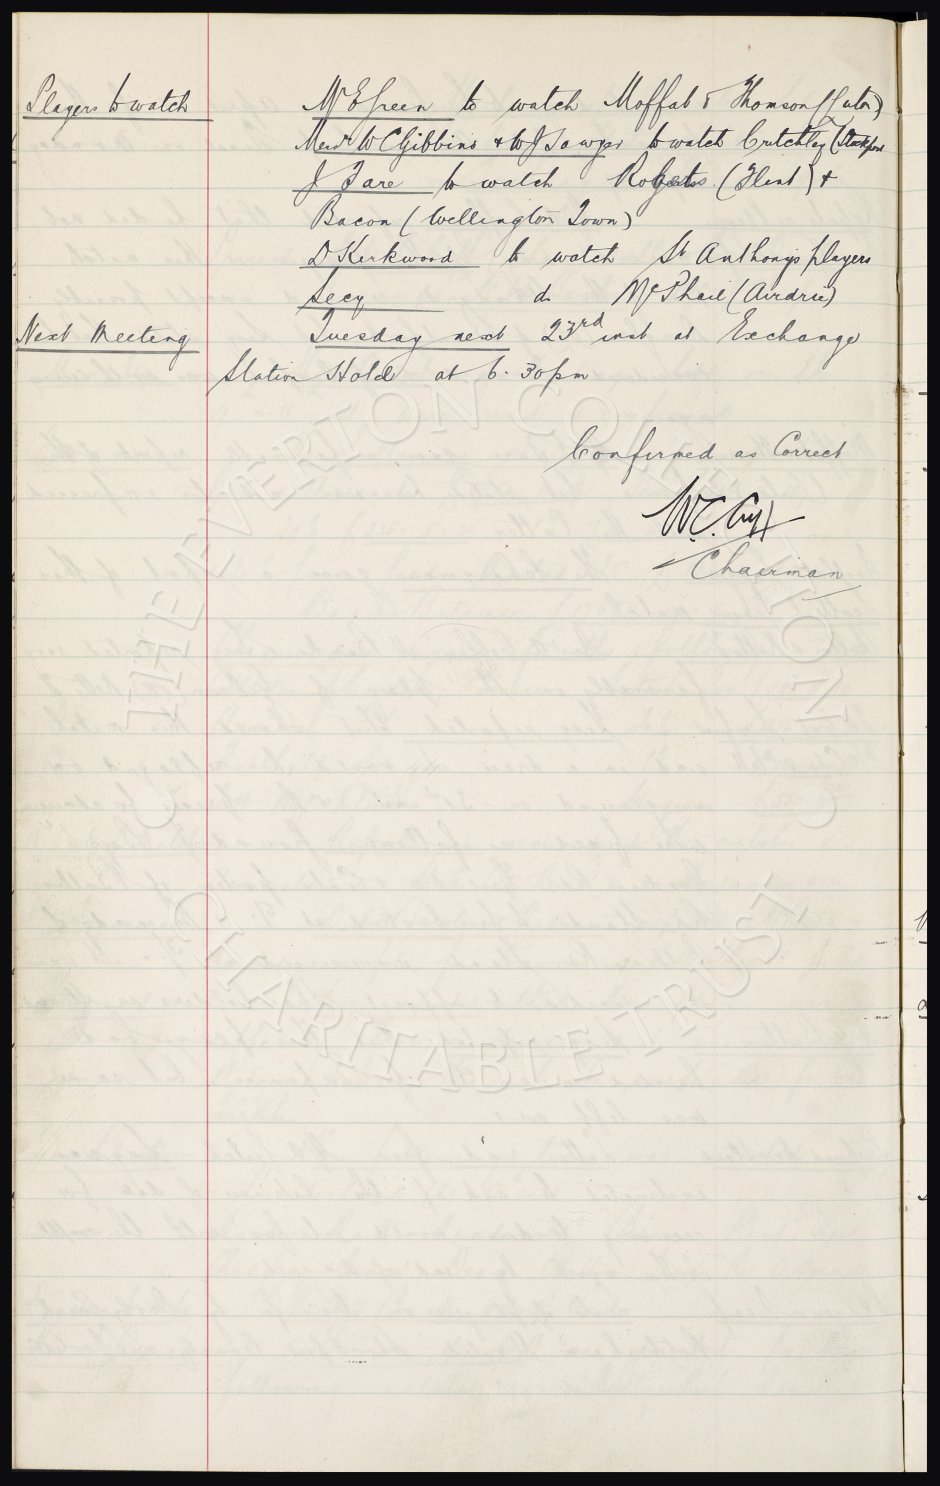 Players to watch
Mr E Green to watch Moffat & Thomson (Luton)
Messrs W C Gibbins & W J Sawyer to watch Critchley (Stockport
J Fare to watch Roberts (Flint) &
Bacon (Wellington Town)
D Kirkwood to watch St Anthonys players
Secy do McPhail (Airdrie)
Next Meeting
Tuesday next 23rd inst at Exchange
Station Hotel at 6.30pm
Confirmed as Correct
W.C. Cuff
Chairman
© THE EVERTON COLLECTION ©
CHARITABLE TRUST